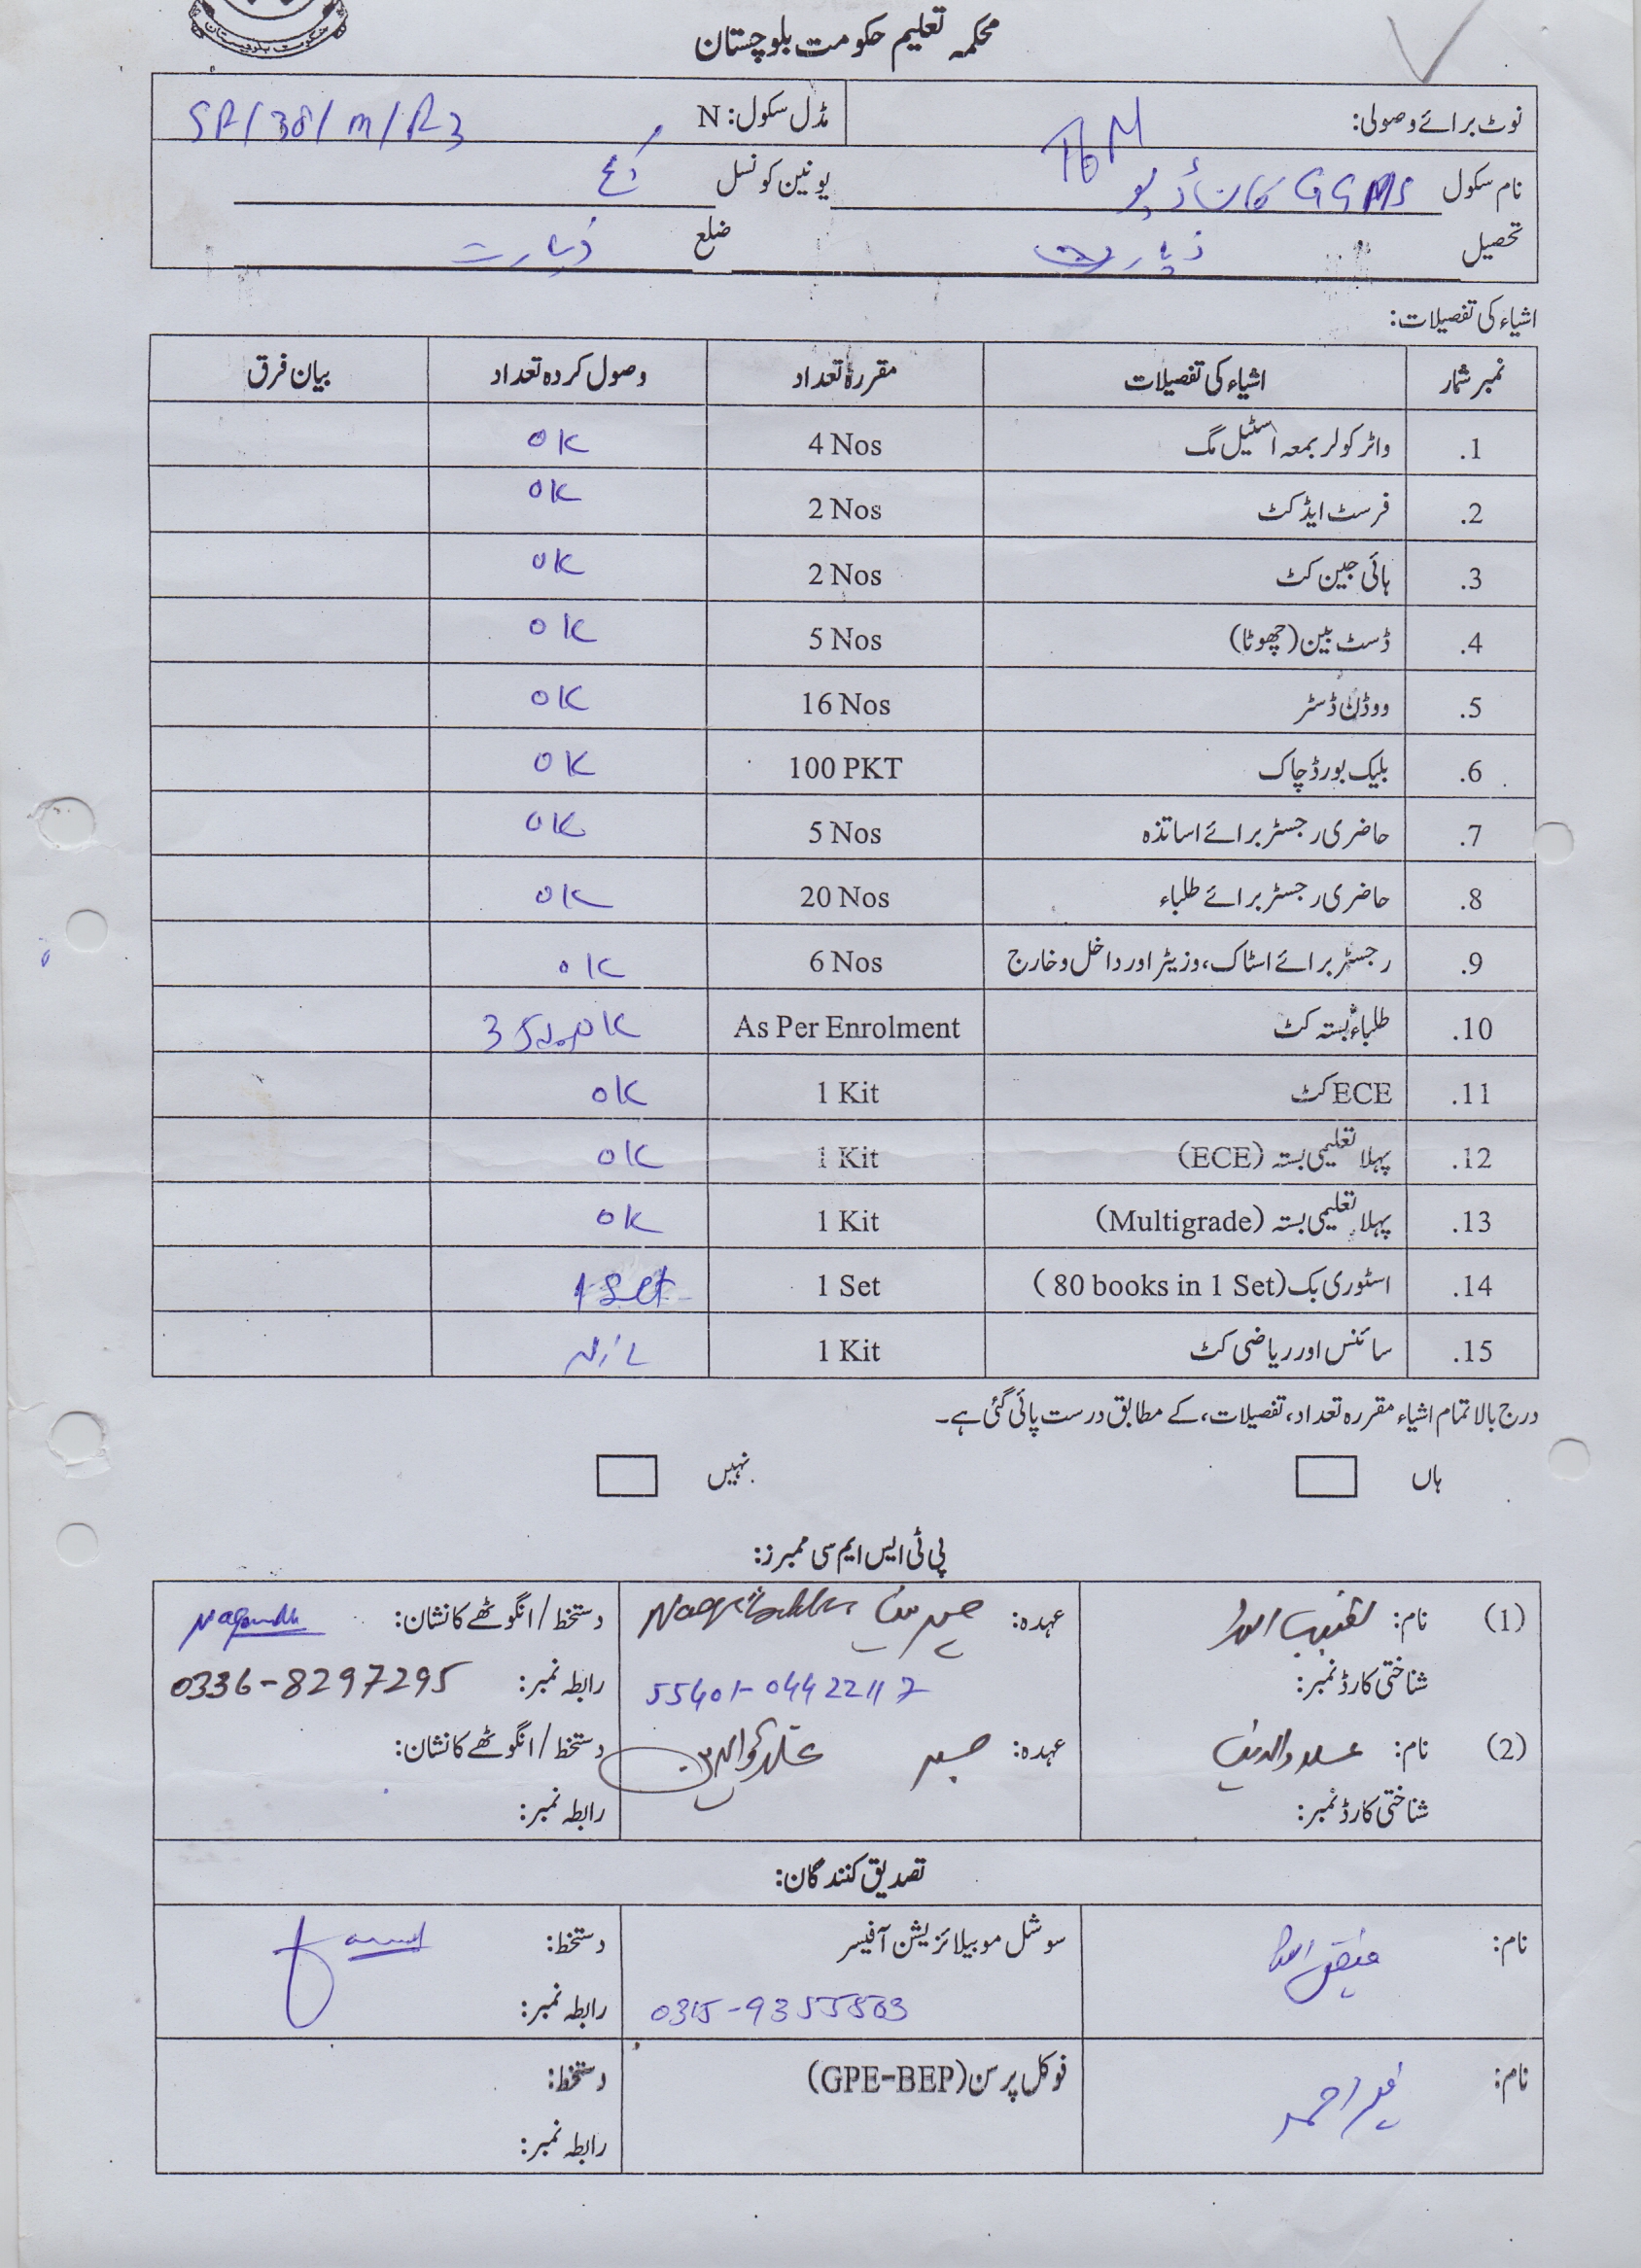 حکومت بلوچستان
محکمہ تعلیم حکومت بلوچستان
نوٹ برائے وصولی: مڈل سکول: N SR/38/M/R3
نام سکول GGMS کان ڈپو یونین کونسل
تحصیل زیارت ضلع زیارت
اشیاء کی تفصیلات:
نمبر شمار اشیاء کی تفصیلات مقررہ تعداد وصول کردہ تعداد بیان فرق
1. واٹر کولر بمعہ اسٹیل مگ 4 Nos OK
2. فرسٹ ایڈ کٹ 2 Nos OK
3. ہائی جین کٹ 2 Nos OK
4. ڈسٹ بین (چھوٹا) 5 Nos OK
5. ووڈن ڈسٹر 16 Nos OK
6. بلیک بورڈ چاک 100 PKT OK
7. حاضری رجسٹر برائے اساتذہ 5 Nos OK
8. حاضری رجسٹر برائے طلباء 20 Nos OK
9. رجسٹر برائے اسٹاک، وزیٹر اور داخل و خارج 6 Nos OK
10. طلباء بستہ کٹ As Per Enrolment OK 35
11. ECE کٹ 1 Kit OK
12. پہلا تعلیمی بستہ (ECE) 1 Kit OK
13. پہلا تعلیمی بستہ (Multigrade) 1 Kit OK
14. اسٹوری بک (80 books in 1 Set) 1 Set 1 Set
15. سائنس اور ریاضی کٹ 1 Kit
درج بالا تمام اشیاء مقررہ تعداد، تفصیلات، کے مطابق درست پائی گئی ہے۔
ہاں نہیں
پی ٹی ایس ایم سی ممبرز:
(1) نام: نقیب اللہ عہدہ: چیئرمین دستخط / انگوٹھے کا نشان:
شناختی کارڈ نمبر: 55401-04422117 رابطہ نمبر: 0336-8297295
(2) نام: عہدہ: ممبر دستخط / انگوٹھے کا نشان:
شناختی کارڈ نمبر: رابطہ نمبر:
تصدیق کنندگان:
نام: سوشل موبیلائزیشن آفیسر دستخط:
0315-9355503 رابطہ نمبر:
نام: فوکل پرسن (GPE-BEP) دستخط:
رابطہ نمبر: